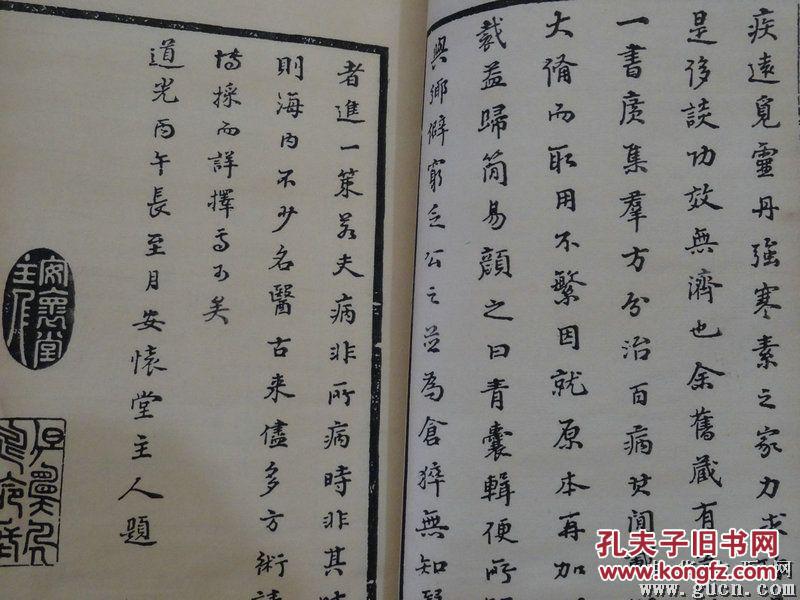 疾遠覓靈丹強寒素之家力求
是侈談功效無濟也余舊藏有
一書廣集羣方分治百病其間
大備而取用不繁因就原本再加
裁益歸简易顔之曰青囊輯便所
與鄉僻窮乏公之並為倉猝無知醫
者進一策若夫病非所病時非其時
則海内不少名醫古来儘多方術請
博採而詳擇焉可矣
道光丙午長至月安懷堂主人題
安懷堂主人
孔夫子旧书网
www.kongfz.com
网
www.gucn.com